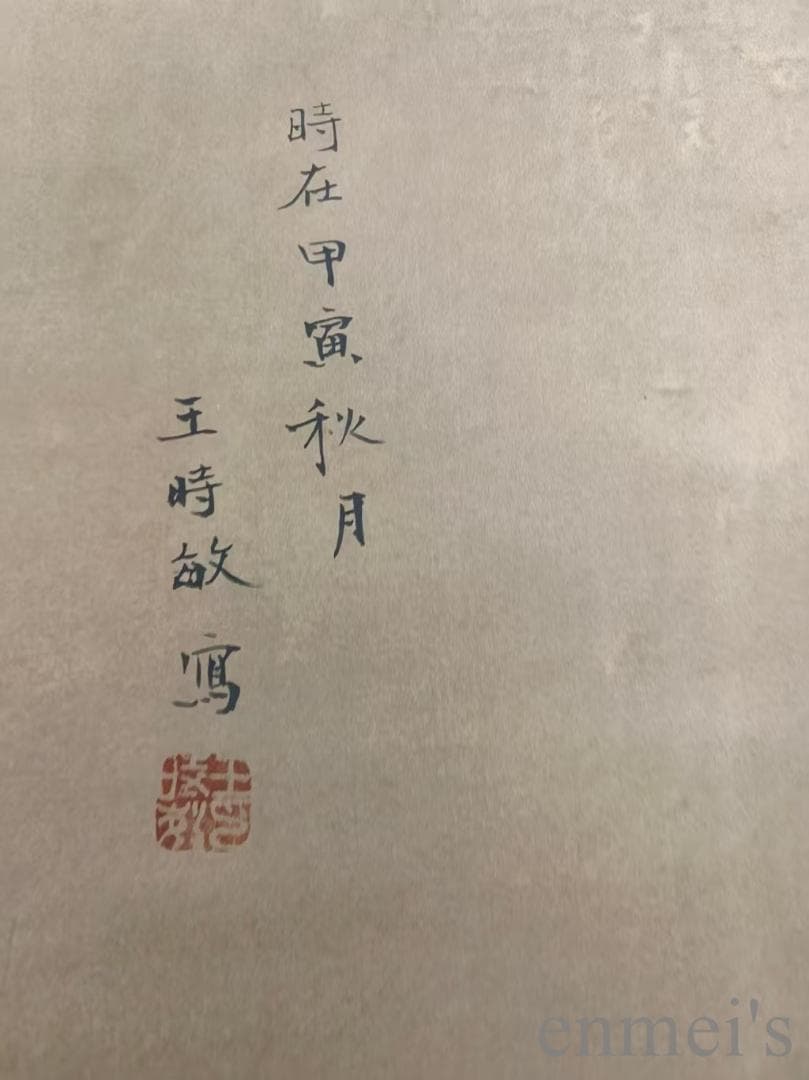 時在甲寅秋月
王時敏寫
enmei's